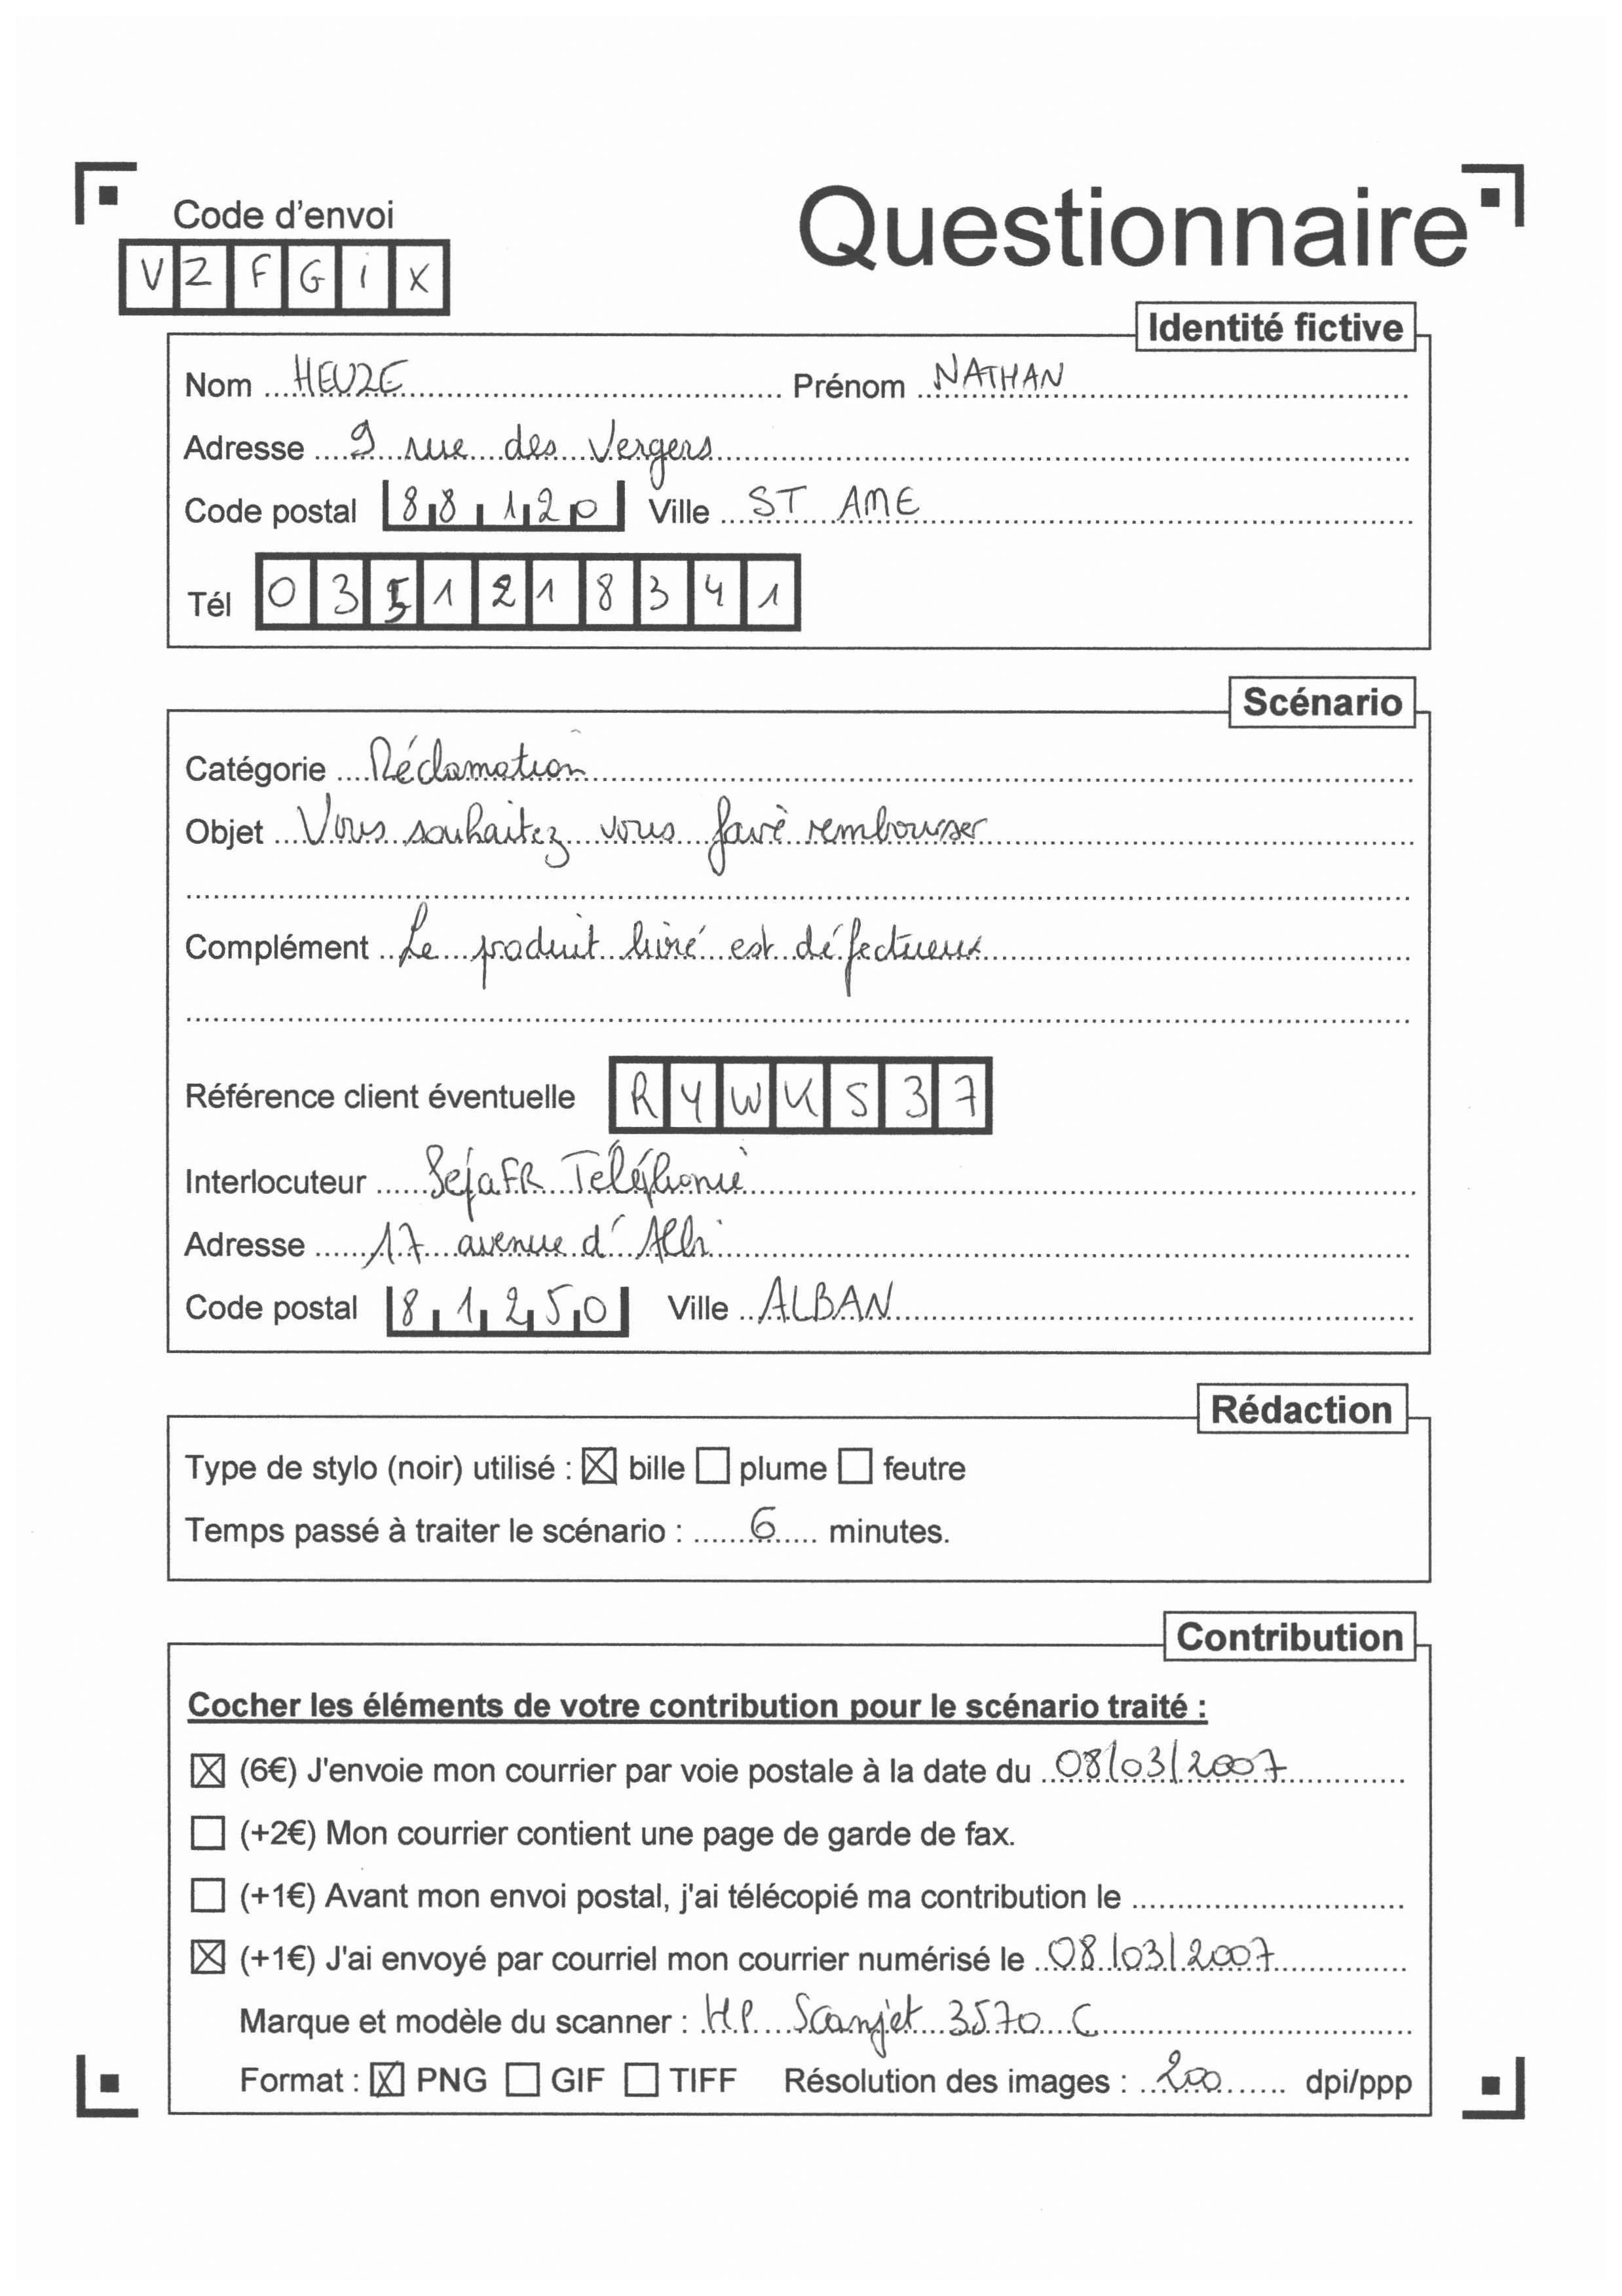 Code d'envoi
Questionnaire
VZFGiX
Identité fictive
Nom HEUZE Prénom NATHAN
Adresse 9 rue des Vergers
Code postal 88120 Ville ST AME
Tél 0351218341
Scénario
Catégorie Réclamation
Objet Vous souhaitez vous faire rembourser
Complément Le produit livré est défectueux
Référence client éventuelle RYWKS37
Interlocuteur SejaFR Téléphonie
Adresse 17 avenue d'Albi
Code postal 81250 Ville ALBAN
Rédaction
Type de stylo (noir) utilisé : ☒ bille ☐ plume ☐ feutre
Temps passé à traiter le scénario : 6 minutes.
Contribution
Cocher les éléments de votre contribution pour le scénario traité :
☒ (6€) J'envoie mon courrier par voie postale à la date du 08/03/2007
☐ (+2€) Mon courrier contient une page de garde de fax.
☐ (+1€) Avant mon envoi postal, j'ai télécopié ma contribution le
☒ (+1€) J'ai envoyé par courriel mon courrier numérisé le 08/03/2007
Marque et modèle du scanner : HP Scanjet 3570 C
Format : ☒ PNG ☐ GIF ☐ TIFF Résolution des images : 200 dpi/ppp